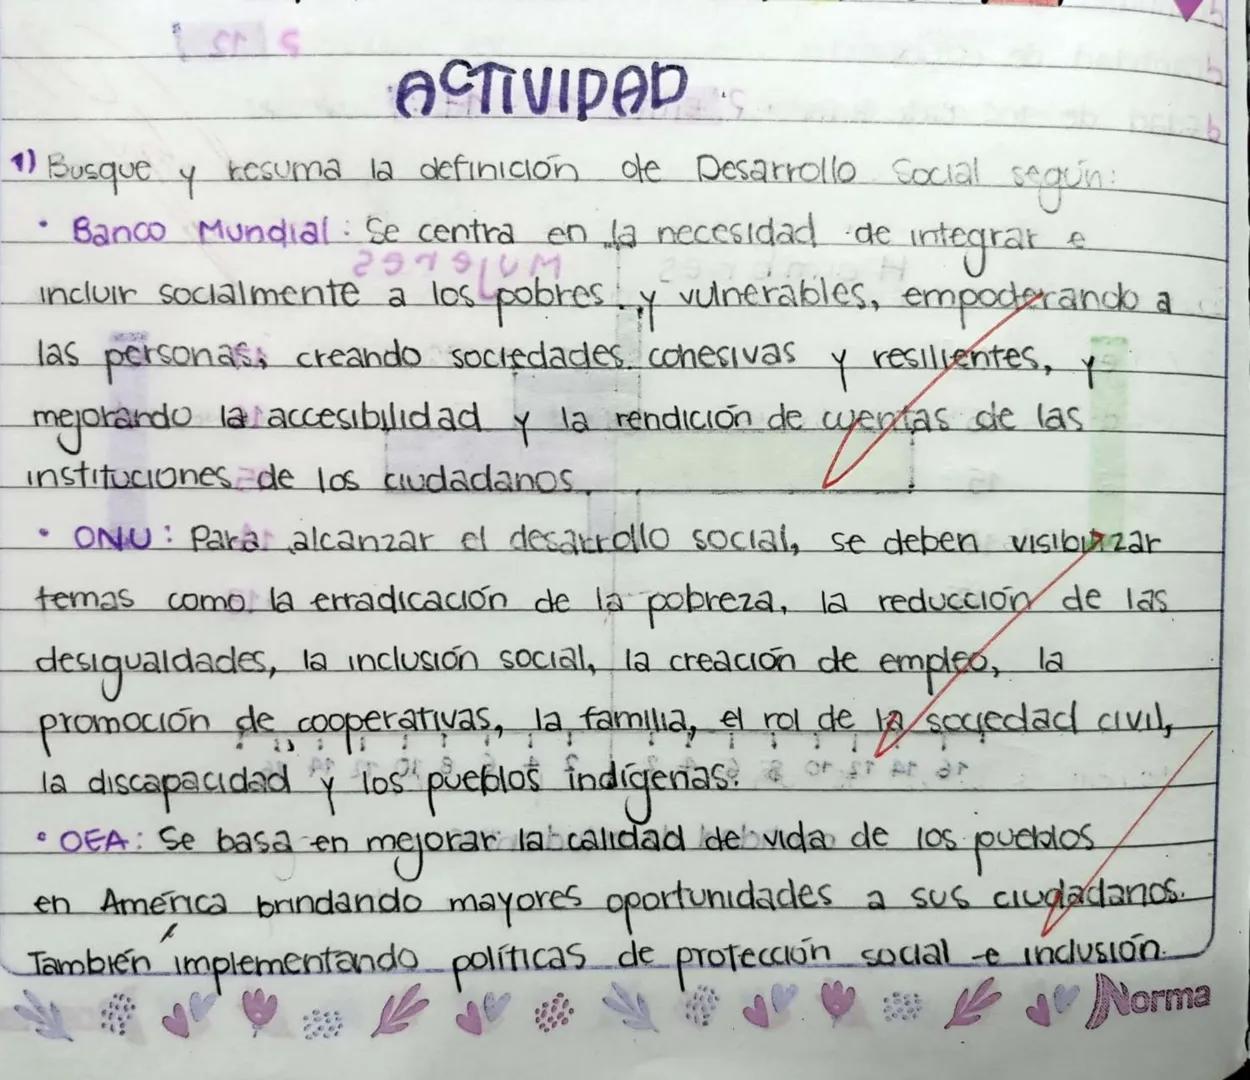 ACTIVIDAD
1) Busque y resuma la definición de Desarrollo Social según:
• Banco Mundial: Se centra en la necesidad de integrar e
incluir socialmente a los pobres y vulnerables, empoderando a
las personas, creando sociedades cohesivas y resilientes, y
mejorando la accesibilidad y la rendición de cuentas de las
instituciones de los ciudadanos.
• ONU: Para alcanzar el desarrollo social, se deben visibilizar
temas como la erradicación de la pobreza, la reducción de las
desigualdades, la inclusión social, la creación de empleo, la
promoción de cooperativas, la familia, el rol de la sociedad civil,
la discapacidad y los pueblos indígenas.
• OEA: Se basa en mejorar la calidad de vida de los pueblos
en América brindando mayores oportunidades a sus ciudadanos.
También implementando políticas de protección social e inclusión.
Norma